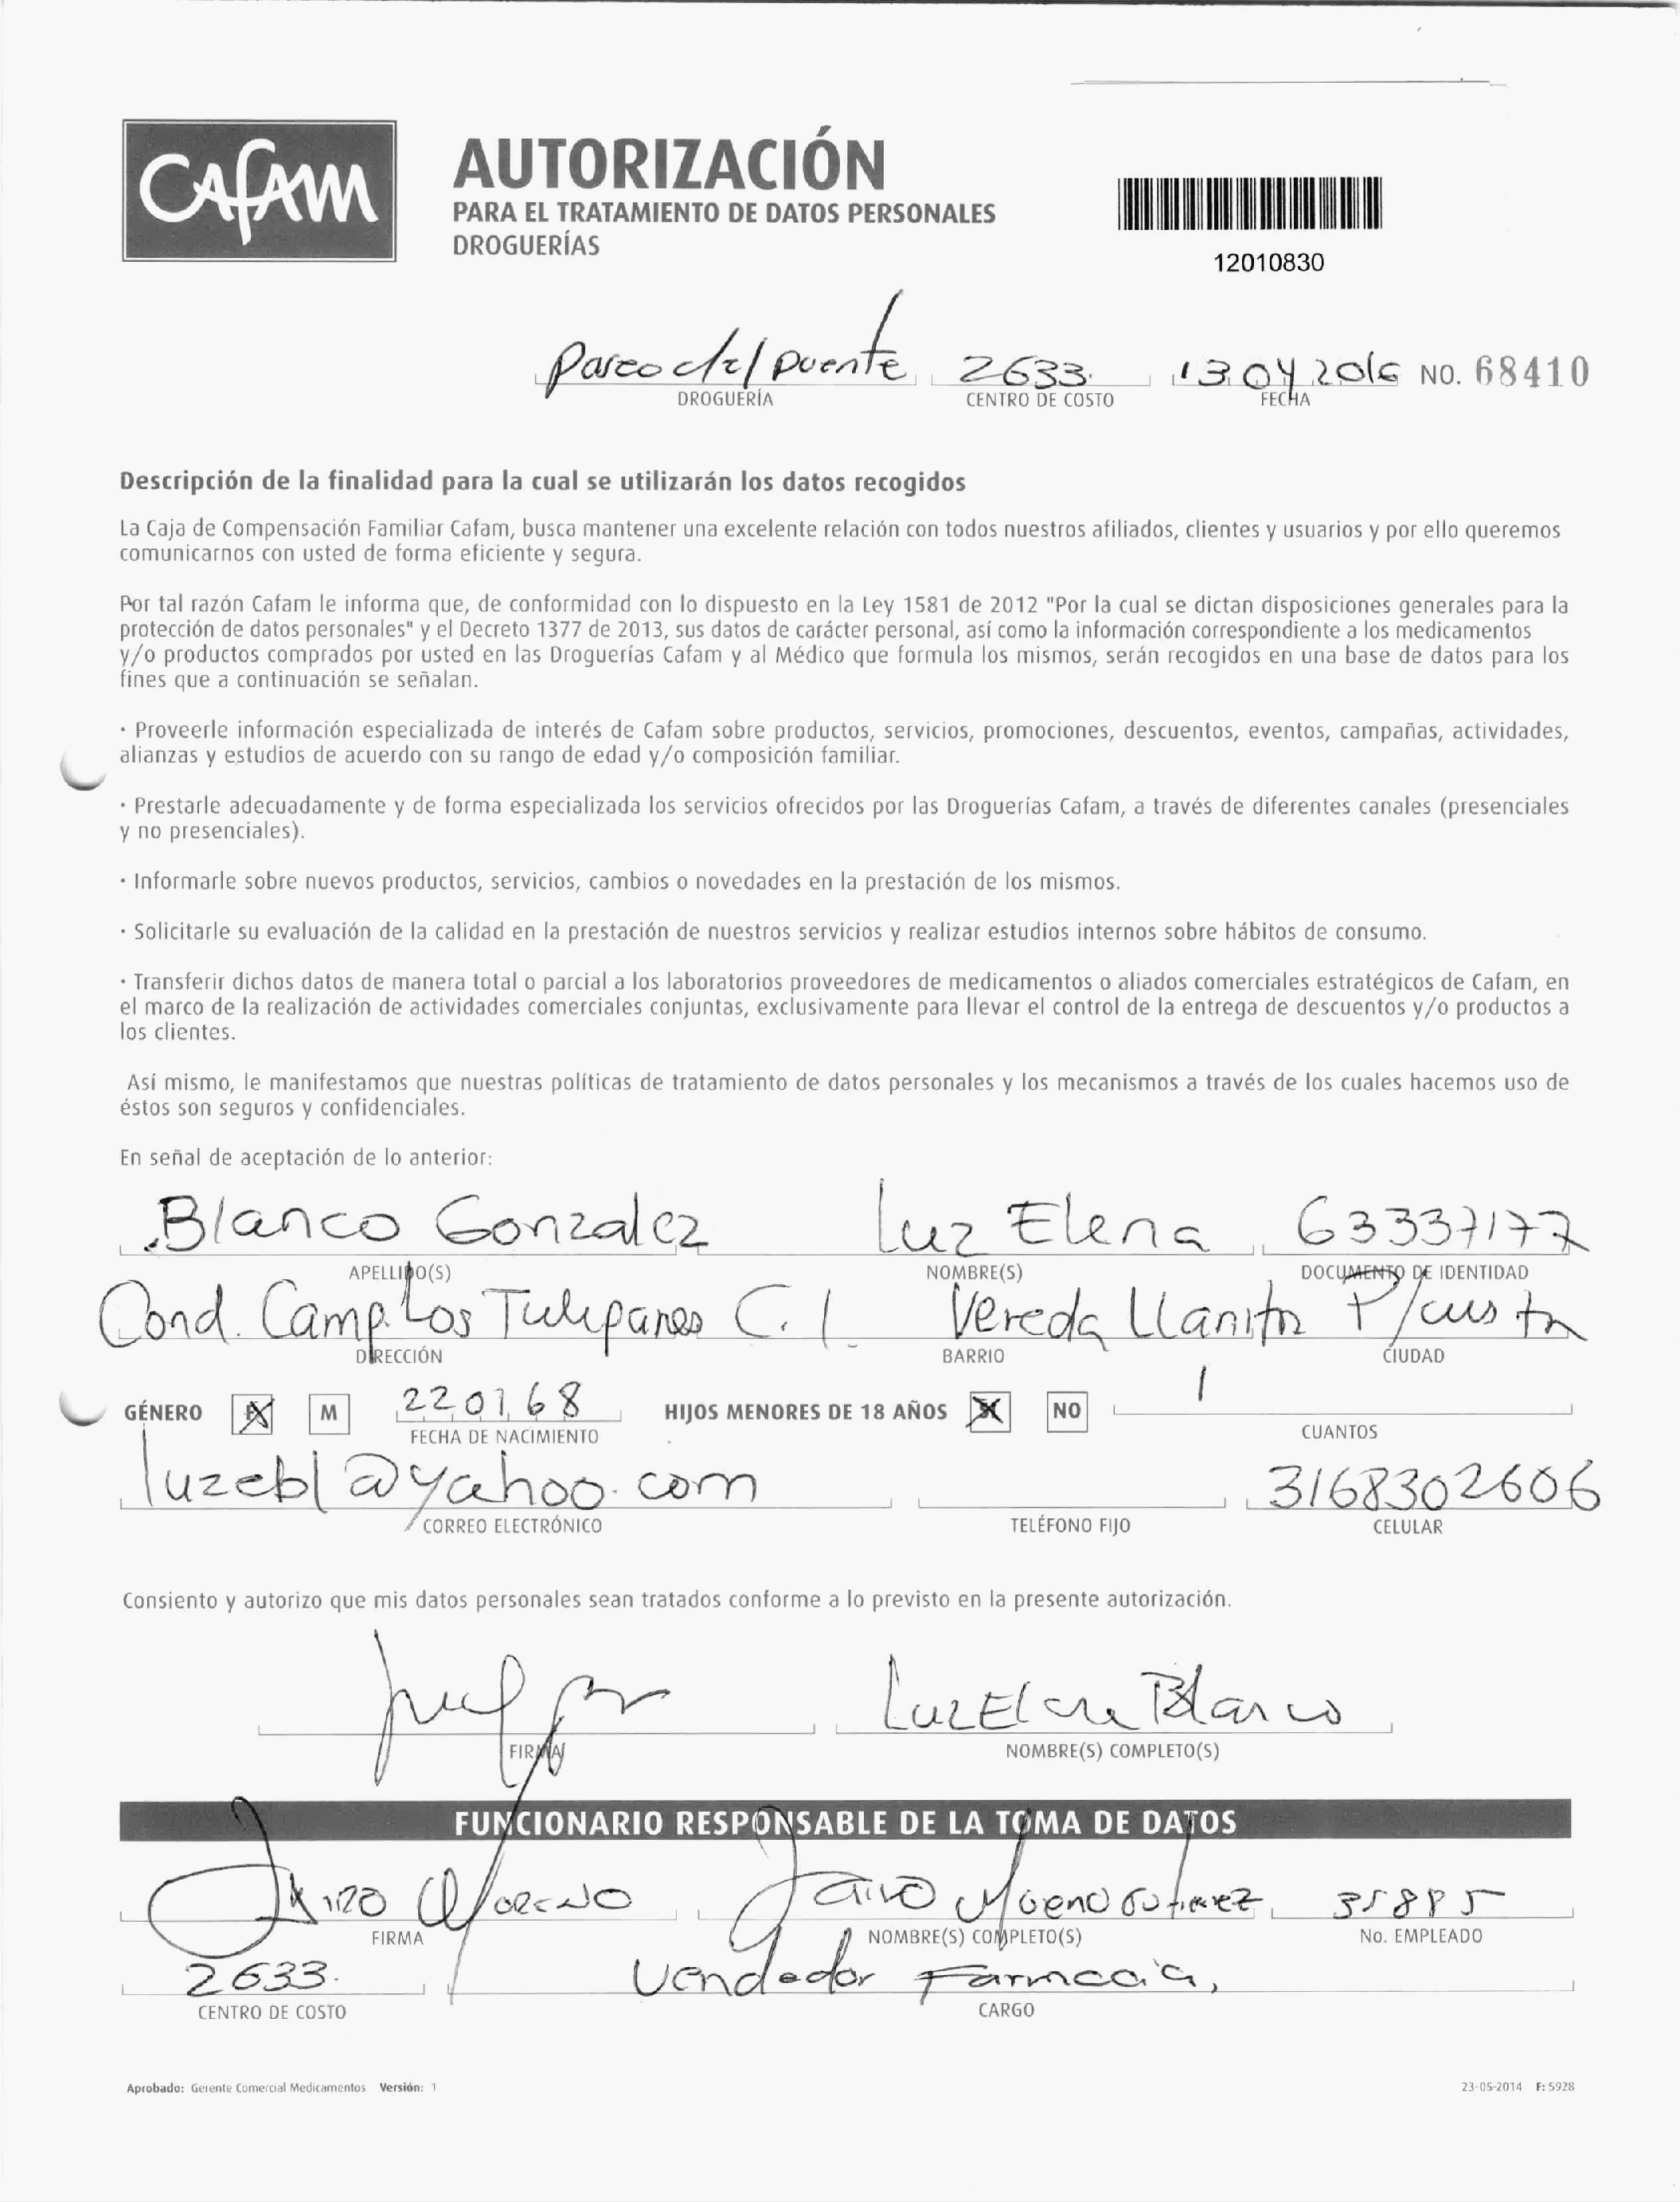 CAFAM
AUTORIZACIÓN
PARA EL TRATAMIENTO DE DATOS PERSONALES
DROGUERÍAS
12010830
Paseo del puente 2633. 13 04 2016 NO. 68410
DROGUERÍA CENTRO DE COSTO FECHA
Descripción de la finalidad para la cual se utilizarán los datos recogidos
La Caja de Compensación Familiar Cafam, busca mantener una excelente relación con todos nuestros afiliados, clientes y usuarios y por ello queremos
comunicarnos con usted de forma eficiente y segura.
Por tal razón Cafam le informa que, de conformidad con lo dispuesto en la Ley 1581 de 2012 "Por la cual se dictan disposiciones generales para la
protección de datos personales" y el Decreto 1377 de 2013, sus datos de carácter personal, así como la información correspondiente a los medicamentos
y/o productos comprados por usted en las Droguerías Cafam y al Médico que formula los mismos, serán recogidos en una base de datos para los
fines que a continuación se señalan.
· Proveerle información especializada de interés de Cafam sobre productos, servicios, promociones, descuentos, eventos, campañas, actividades,
alianzas y estudios de acuerdo con su rango de edad y/o composición familiar.
· Prestarle adecuadamente y de forma especializada los servicios ofrecidos por las Droguerías Cafam, a través de diferentes canales (presenciales
y no presenciales).
· Informarle sobre nuevos productos, servicios, cambios o novedades en la prestación de los mismos.
· Solicitarle su evaluación de la calidad en la prestación de nuestros servicios y realizar estudios internos sobre hábitos de consumo.
· Transferir dichos datos de manera total o parcial a los laboratorios proveedores de medicamentos o aliados comerciales estratégicos de Cafam, en
el marco de la realización de actividades comerciales conjuntas, exclusivamente para llevar el control de la entrega de descuentos y/o productos a
los clientes.
Así mismo, le manifestamos que nuestras políticas de tratamiento de datos personales y los mecanismos a través de los cuales hacemos uso de
éstos son seguros y confidenciales.
En señal de aceptación de lo anterior:
Blanco Gonzalez Luz Elena 63337177
APELLIDO(S) NOMBRE(S) DOCUMENTO DE IDENTIDAD
Cond. Camp. Los Tulipanes C. 1. Vereda Llanito
DIRECCIÓN BARRIO CIUDAD
GÉNERO F M 220168 HIJOS MENORES DE 18 AÑOS SI NO 1
FECHA DE NACIMIENTO CUANTOS
luzebl@yahoo.com 3168302606
CORREO ELECTRÓNICO TELÉFONO FIJO CELULAR
Consiento y autorizo que mis datos personales sean tratados conforme a lo previsto en la presente autorización.
Luz Elena Blanco
FIRMA NOMBRE(S) COMPLETO(S)
FUNCIONARIO RESPONSABLE DE LA TOMA DE DATOS
Jairo Moreno Jairo Moreno Gutierrez 35885
FIRMA NOMBRE(S) COMPLETO(S) No. EMPLEADO
2633. Vendedor Farmacia,
CENTRO DE COSTO CARGO
Aprobado: Gerente Comercial Medicamentos Versión: 1 23-05-2014 F: 5928